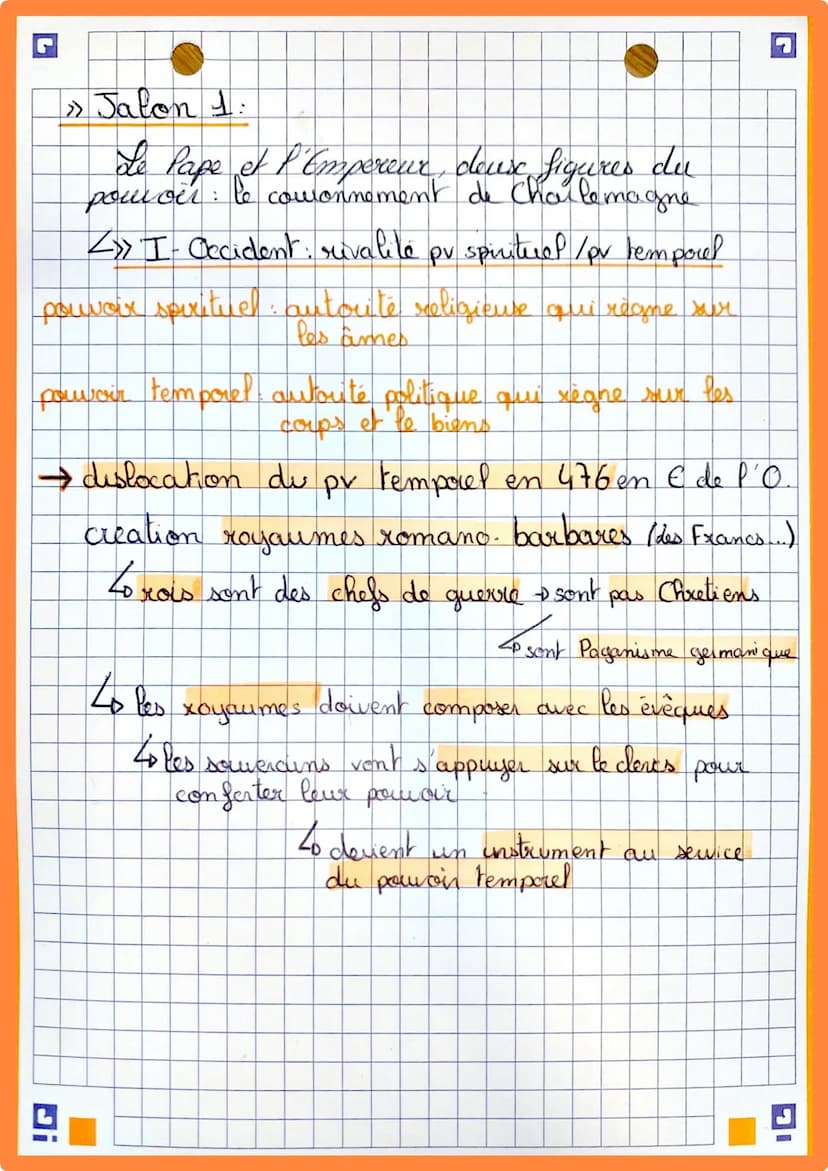 » Jalon 1:
Le Pape et l'Empereur, deux figures du
pouvoir : le couronnement de Charlemagne
↳» I- Occident : rivalité pv spirituel /pv temporel
pouvoir spirituel : autorité religieuse qui règne sur
les âmes
pouvoir temporel : autorité politique qui règne sur les
corps et le biens
→ dislocation du pv temporel en 476 en € de l'O.
création royaumes romano-barbares (des Francs...)
↳ rois sont des chefs de guerre → sont pas Chretiens
↳ sont Paganisme germanique
↳ les royaumes doivent composer avec les évêques
↳ les souverains vont s'appuyer sur le clercs pour
conforter leur pouvoir
↳ devient un instrument au service
du pouvoir temporel